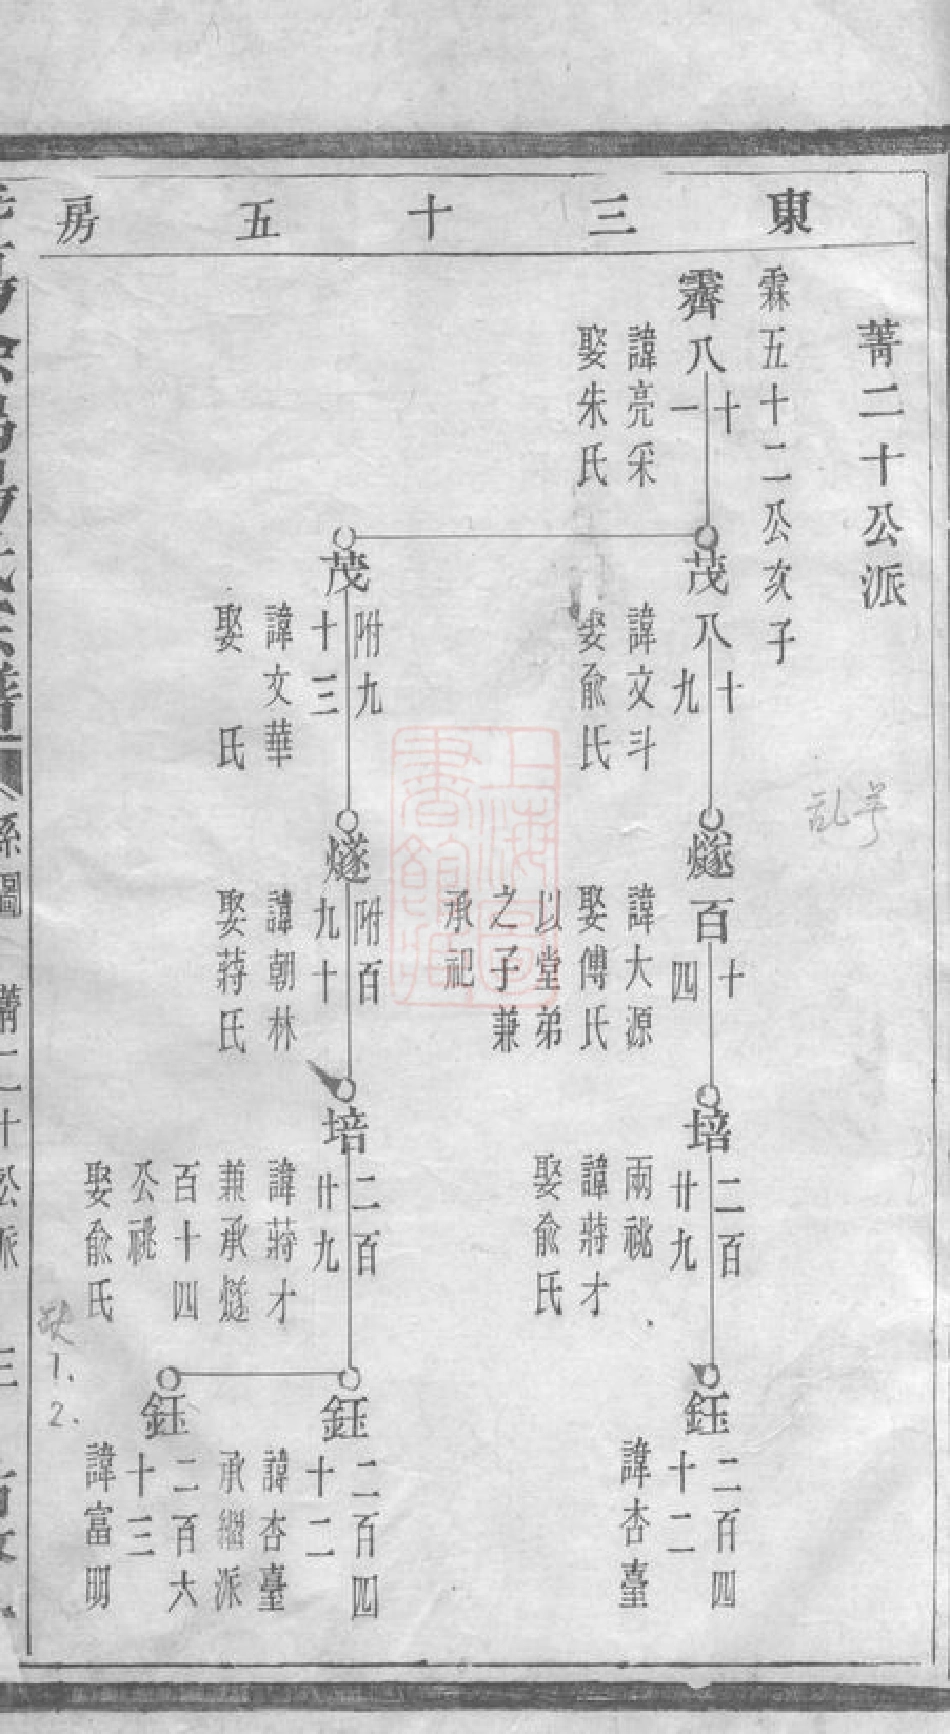 東三十五房
菁二十公派
霖五十二公次子
霽八十一
諱亮采
娶朱氏
茂八十九
諱文斗
娶俞氏
茂附九十三
諱文華
娶 氏
燧百十四
諱大源
娶傅氏
以堂弟
之子兼
承祀
燧附百九十
諱朝林
娶蔣氏
培二百廿九
兩祧
諱蔣才
娶俞氏
培二百廿九
諱蔣才
兼承燧
百十四
公祧
娶俞氏
鈺二百四十二
諱杏臺
鈺二百四十二
諱杏臺
承繼派
鈺二百六十三
諱富明
系圖
菁二十公派
三
上海圖書館藏
1.
2.